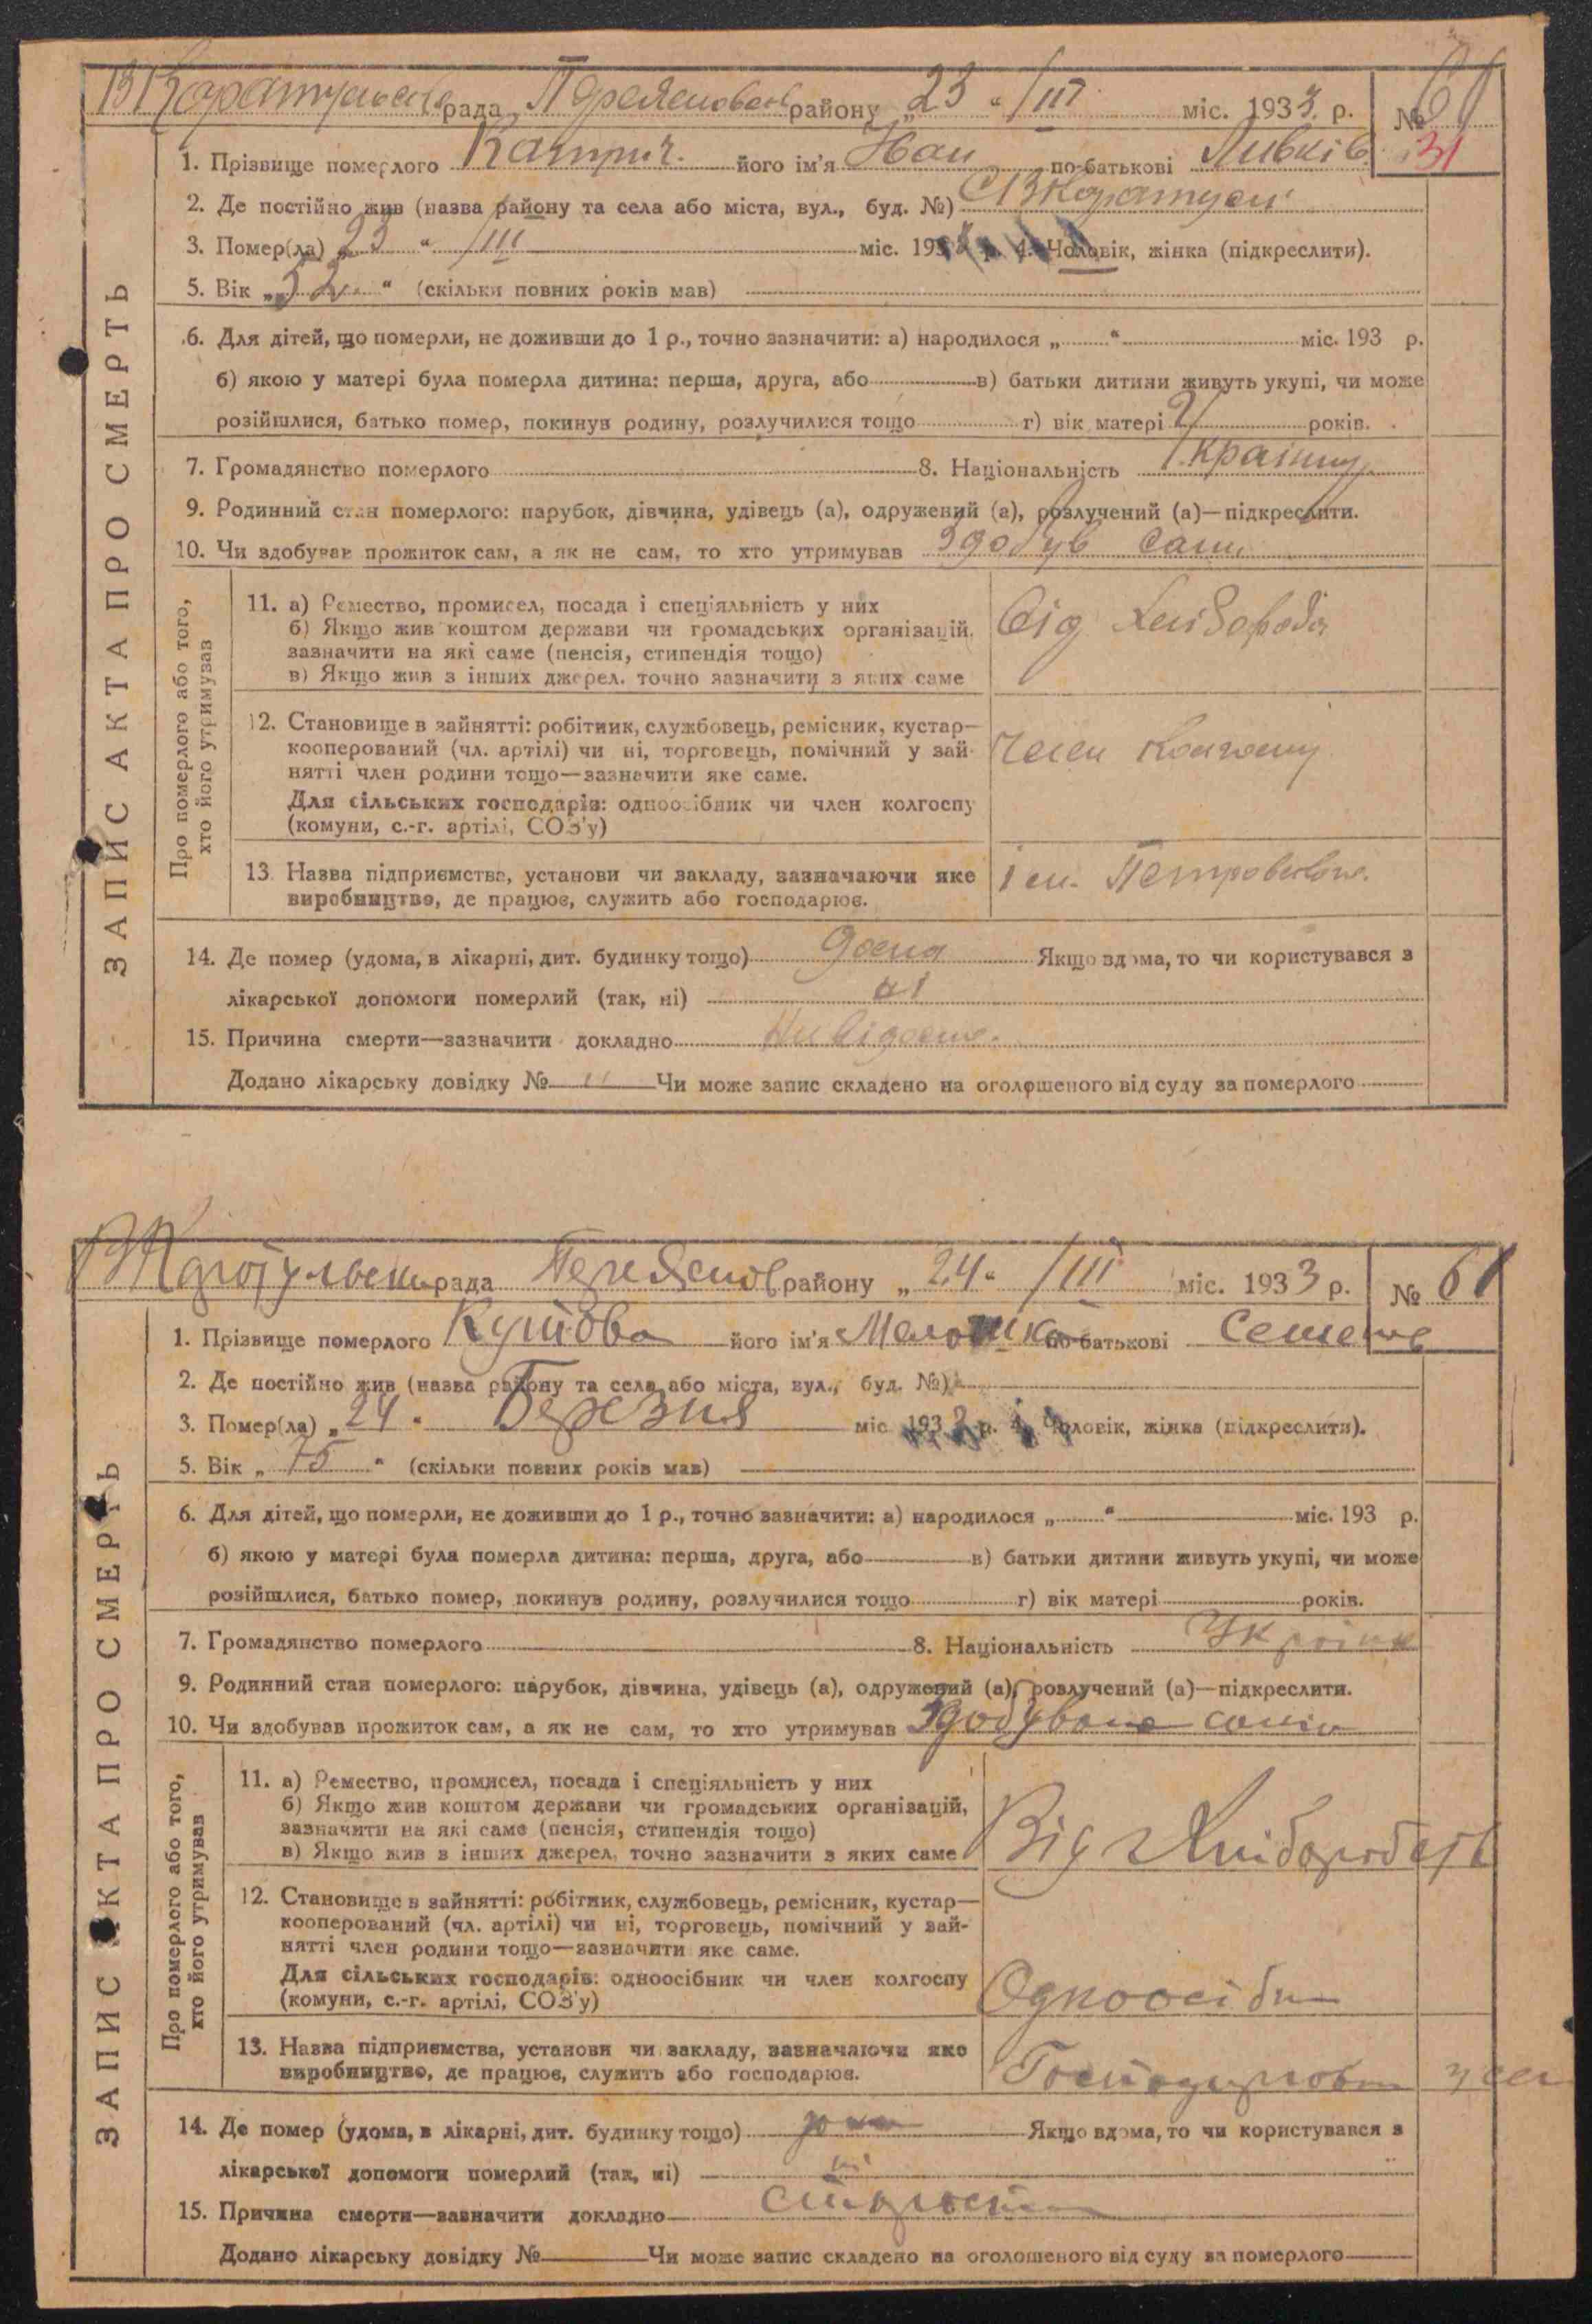 рада Переяславськ району „ 23 “ /III міс. 1933 р. №
31
1. Прізвище померлого його ім'я Іван по-батькові
2. Де постійно жив (назва району та села або міста, вул., буд. №)
3. Помер(ла) „ 23 “ /III міс. 193 р. 4. Чоловік, жінка (підкреслити).
5. Вік „ 32 “ (скільки повних років мав)
6. Для дітей, що померли, не доживши до 1 р., точно зазначити: а) народилося „ “ міс. 193 р.
б) якою у матері була померла дитина: перша, друга, або в) батьки дитини живуть укупі, чи може
розійшлися, батько помер, покинув родину, розлучилися тощо г) вік матері років.
7. Громадянство померлого 8. Національність
9. Родинний стан померлого: парубок, дівчина, удівець (а), одружений (а), розлучений (а)—підкреслити.
10. Чи здобував прожиток сам, а як не сам, то хто утримував здобув сам
ЗАПИС АКТА ПРО СМЕРТЬ
Про померлого або того,
хто його утримував
11. а) Ремество, промисел, посада і спеціяльність у них
б) Якщо жив коштом держави чи громадських організацій,
зазначити на які саме (пенсія, стипендія тощо)
в) Якщо жив з інших джерел, точно зазначити з яких саме
Від
12. Становище в зайнятті: робітник, службовець, ремісник, кустар—
кооперований (чл. артілі) чи ні, торговець, помічний у зай-
нятті член родини тощо—зазначити яке саме.
Для сільських господарів: одноосібник чи член колгоспу
(комуни, с.-г. артілі, СОЗ'у)
член колгоспу
13. Назва підприємства, установи чи закладу, зазначаючи яке
виробництво, де працює, служить або господарює.
ім. Петровського
14. Де помер (удома, в лікарні, дит. будинку тощо) дома Якщо вдома, то чи користувався з
лікарської допомоги померлий (так, ні) ні
15. Причина смерти—зазначити докладно Не відомо.
Додано лікарську довідку № Чи може запис складено на оголошеного від суду за померлого
рада Переяслов району „ 24 “ /III міс. 1933 р. № 61
1. Прізвище померлого його ім'я по-батькові
2. Де постійно жив (назва району та села або міста, вул., буд. №)
3. Помер(ла) „ 24 “ Березня міс. 193 р. 4. Чоловік, жінка (підкреслити).
5. Вік „ 75 “ (скільки повних років мав)
6. Для дітей, що померли, не доживши до 1 р., точно зазначити: а) народилося „ “ міс. 193 р.
б) якою у матері була померла дитина: перша, друга, або в) батьки дитини живуть укупі, чи може
розійшлися, батько помер, покинув родину, розлучилися тощо г) вік матері років.
7. Громадянство померлого 8. Національність Україн
9. Родинний стан померлого: парубок, дівчина, удівець (а), одружений (а), розлучений (а)—підкреслити.
10. Чи здобував прожиток сам, а як не сам, то хто утримував здобувала
ЗАПИС АКТА ПРО СМЕРТЬ
Про померлого або того,
хто його утримував
11. а) Ремество, промисел, посада і спеціяльність у них
б) Якщо жив коштом держави чи громадських організацій,
зазначити на які саме (пенсія, стипендія тощо)
в) Якщо жив з інших джерел, точно зазначити з яких саме
Від
12. Становище в зайнятті: робітник, службовець, ремісник, кустар—
кооперований (чл. артілі) чи ні, торговець, помічний у зай-
нятті член родини тощо—зазначити яке саме.
Для сільських господарів: одноосібник чи член колгоспу
(комуни, с.-г. артілі, СОЗ'у)
Одноосібн
13. Назва підприємства, установи чи закладу, зазначаючи яке
виробництво, де працює, служить або господарює.
14. Де помер (удома, в лікарні, дит. будинку тощо) дома Якщо вдома, то чи користувався з
лікарської допомоги померлий (так, ні) ні
15. Причина смерти—зазначити докладно
Додано лікарську довідку № Чи може запис складено на оголошеного від суду за померлого